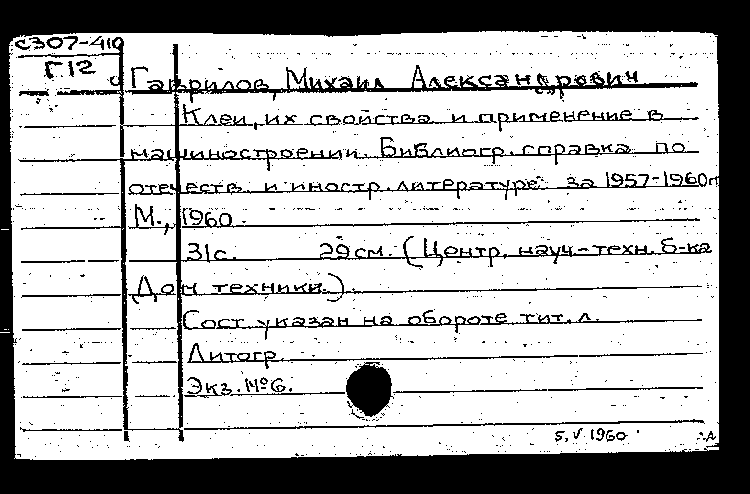 С307-410
Г12
Гаврилов, Михаил Александрович
Клеи, их свойства и применение в
машиностроении. Библиогр. справка по
отечеств. и иностр. литературе за 1957-1960гг
М., 1960.
31с. 29см. (Центр. науч-техн. б-ка
Дом техники).
Сост. указан на обороте тит. л.
Литогр.
Экз. №6.
5.V 1960